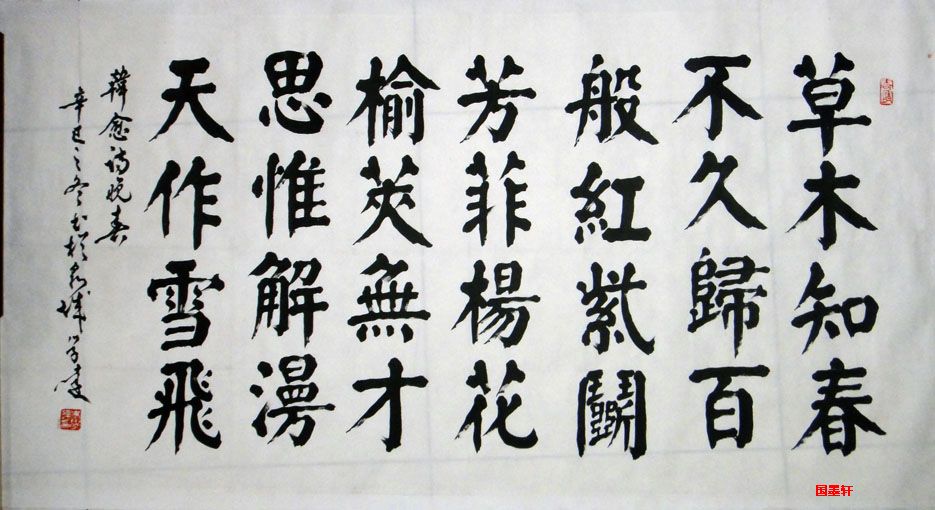 草木知春
不久歸百
般紅紫鬭
芳菲楊花
榆莢無才
思惟解漫
天作雪飛
韓愈詩晚春
辛巳之冬書於
国墨轩